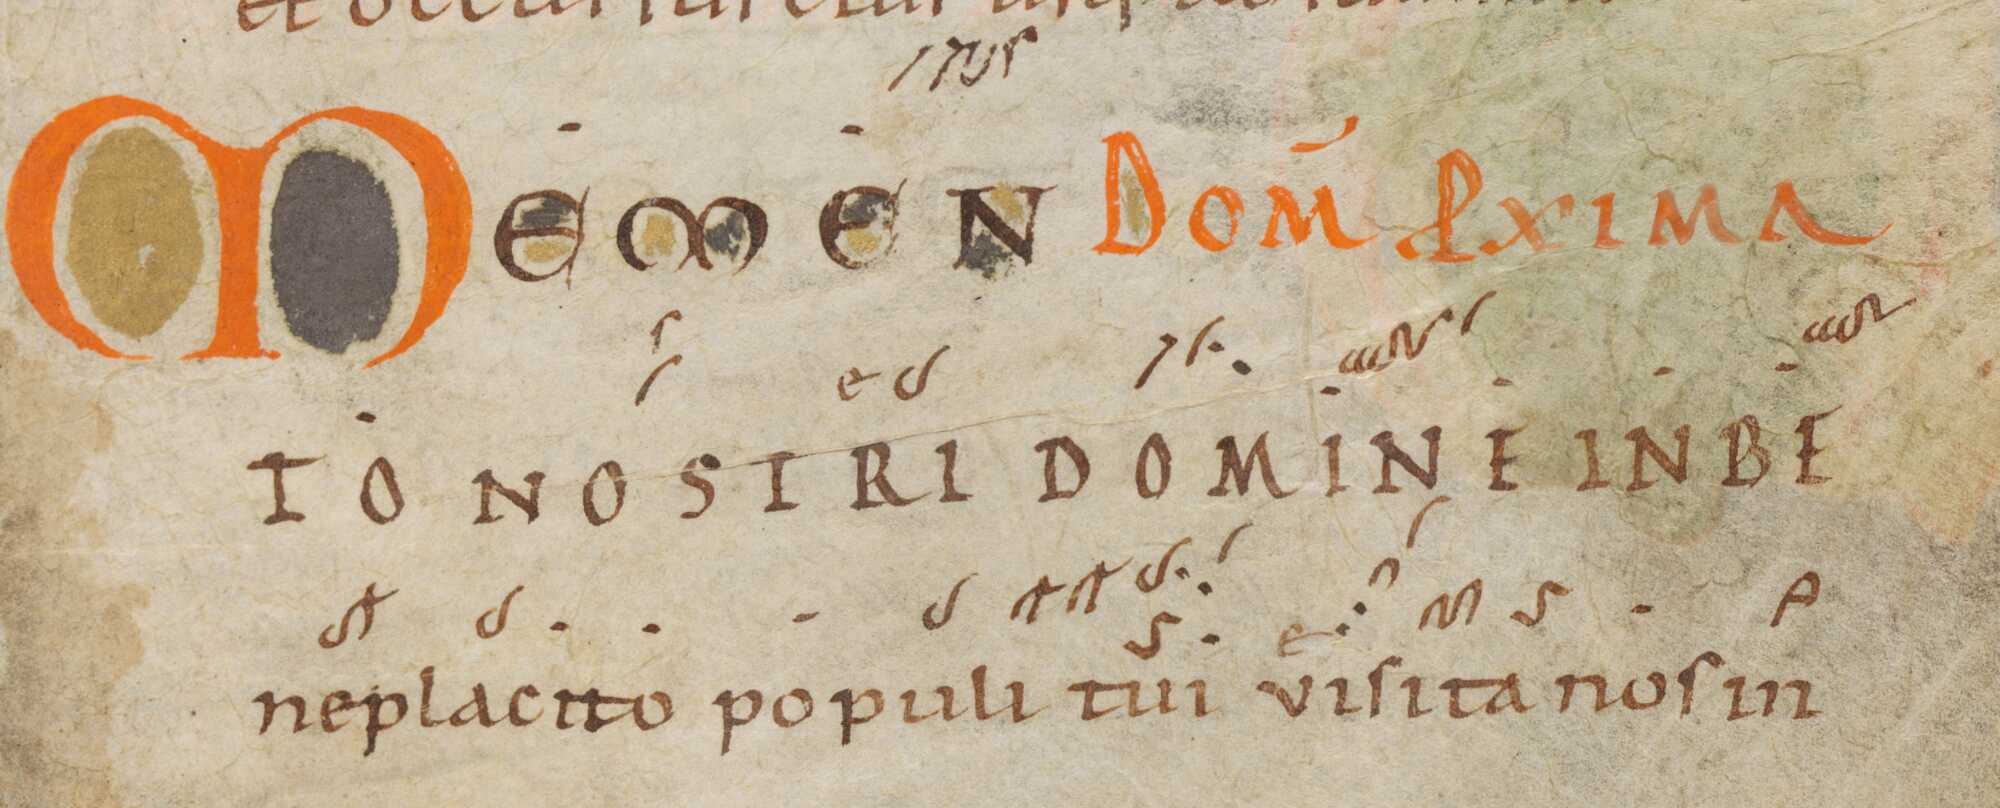 MEMEN DOM̄ PXIMA
TO NOSTRI DOMINE IN BE
neplacito populi tui visita nos in